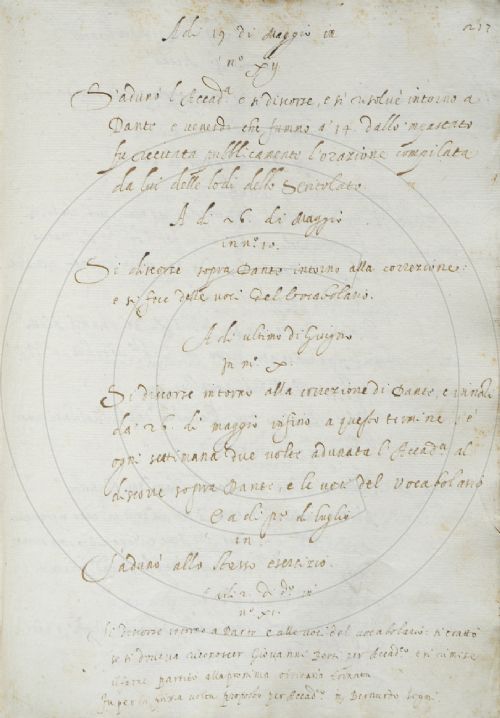 217
A di 19 di Maggio in
n.º XII
S'adunò l'Accad.ª e si discorse, e si risolvè intorno a
Dante e venerdi che fummo a' 14. dallo
fu recitata pubblicamente l'orazione compilata
da lui delle lodi dello
A di 26. di Maggio
in n.º 10.
Si discorse sopra Dante intorno alla correzione:
e si fece delle voci del Vocabolario.
A di ultimo di Giugno
In n.º X.
Si discorse intorno alla correzione di Dante, e
da 26. di maggio infino a questo termine s'è
ogni settimana due volte adunata l'Accad.ª al
discorre sopra Dante, e le voci del Vocabolario
E a di p.º di luglio
in
S'adunò allo stesso esercizio.
di d.º in
n.º XI.
Si discorse intorno a Dante e alle voci del vocabolario: si trattò
se si doveva riconoscer Giovanni per Accad.º e si rimise
il partito alla prossima
In per la prima volta proposto per Accad.º Bernardo